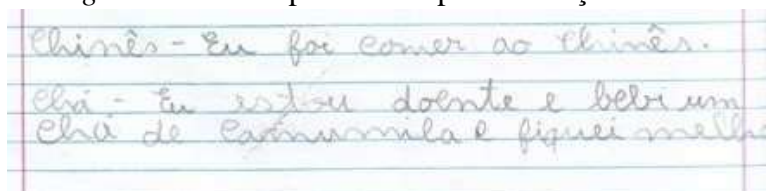 Chinês - Eu foi comer ao chinês.
Chá - Eu estou doente e bebi um
Chá de camumila e fiquei